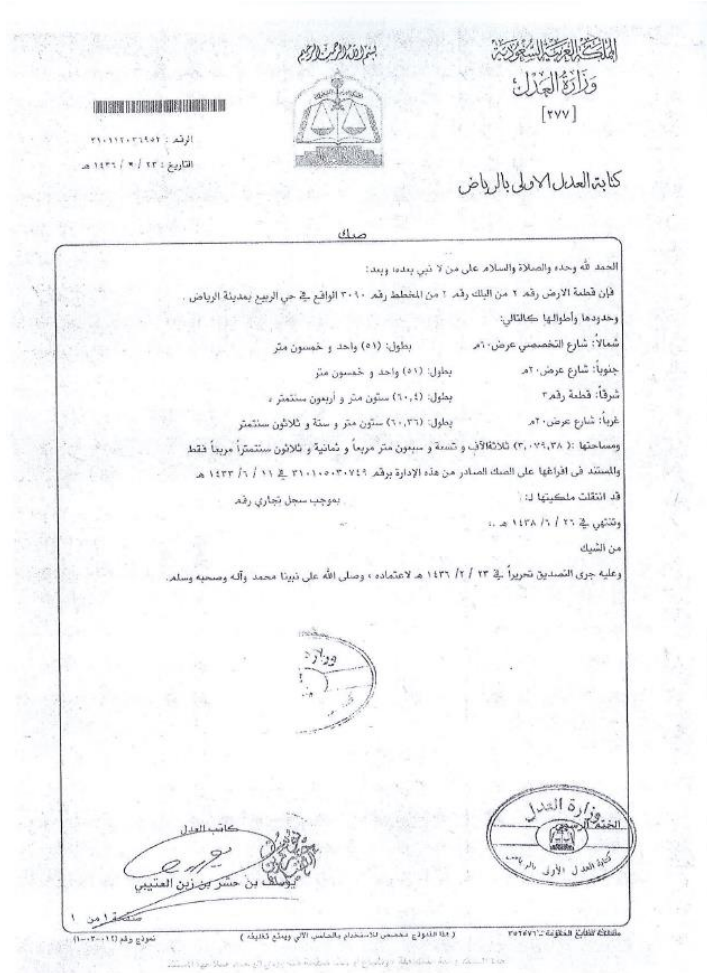 بسم الله الرحمن الرحيم
المملكة العربية السعودية
وزارة العدل
[٢٧٧]
كتابة العدل الاولى بالرياض
الرقم : ٣١٠١١٢٠٣٦٩٥٢
التاريخ : ٢٣ / ٢ / ١٤٣٦ هـ
صك
الحمد لله وحده والصلاة والسلام على من لا نبي بعده، وبعد:
فإن قطعة الارض رقم ٢ من البلك رقم ٢ من المخطط رقم ٣٠٩٠ الواقع في حي الربيع بمدينة الرياض .
وحدودها وأطوالها كالتالي:
شمالاً: شارع التخصصي عرض ٦٠م بطول: (٥١) واحد و خمسون متر
جنوباً: شارع عرض ٢٠م بطول: (٥١) واحد و خمسون متر
شرقاً: قطعة رقم ٣ بطول: (٦٠,٤) ستون متر و أربعون سنتمتر
غرباً: شارع عرض ٢٠م بطول: (٦٠,٣٦) ستون متر و ستة و ثلاثون سنتمتر
ومساحتها :( ٣,٠٧٩,٣٨) ثلاثةآلاف و تسعة و سبعون متر مربعاً و ثمانية و ثلاثون سنتمتراً مربعاً فقط
والمستند في افراغها على الصك الصادر من هذه الإدارة برقم ٣١٠١٠٥٠٣٠٧٤٩ في ١١ / ٦ / ١٤٣٣ هـ
قد انتقلت ملكيتها لـ: بموجب سجل تجاري رقم
وتنتهي في ٢٦ / ٦ / ١٤٣٨ هـ
من الشيك
وعليه جرى التصديق تحريراً في ٢٣ / ٢ / ١٤٣٦ هـ لاعتماده ، وصلى الله على نبينا محمد وآله وصحبه وسلم.
وزارة العدل
الختم الرسمي
كتابة العدل الأولى بالرياض
كاتب العدل
يوسف بن حشر بن زين العتيبي
صفحة ١ من ١
مصلحة مطابع الحكومة - ٣٥٢٥٧٦
( هذا النموذج مخصص للاستخدام بالحاسب الآلي ويمنع تغليفه )
نموذج رقم (١٢-٠٣-١)